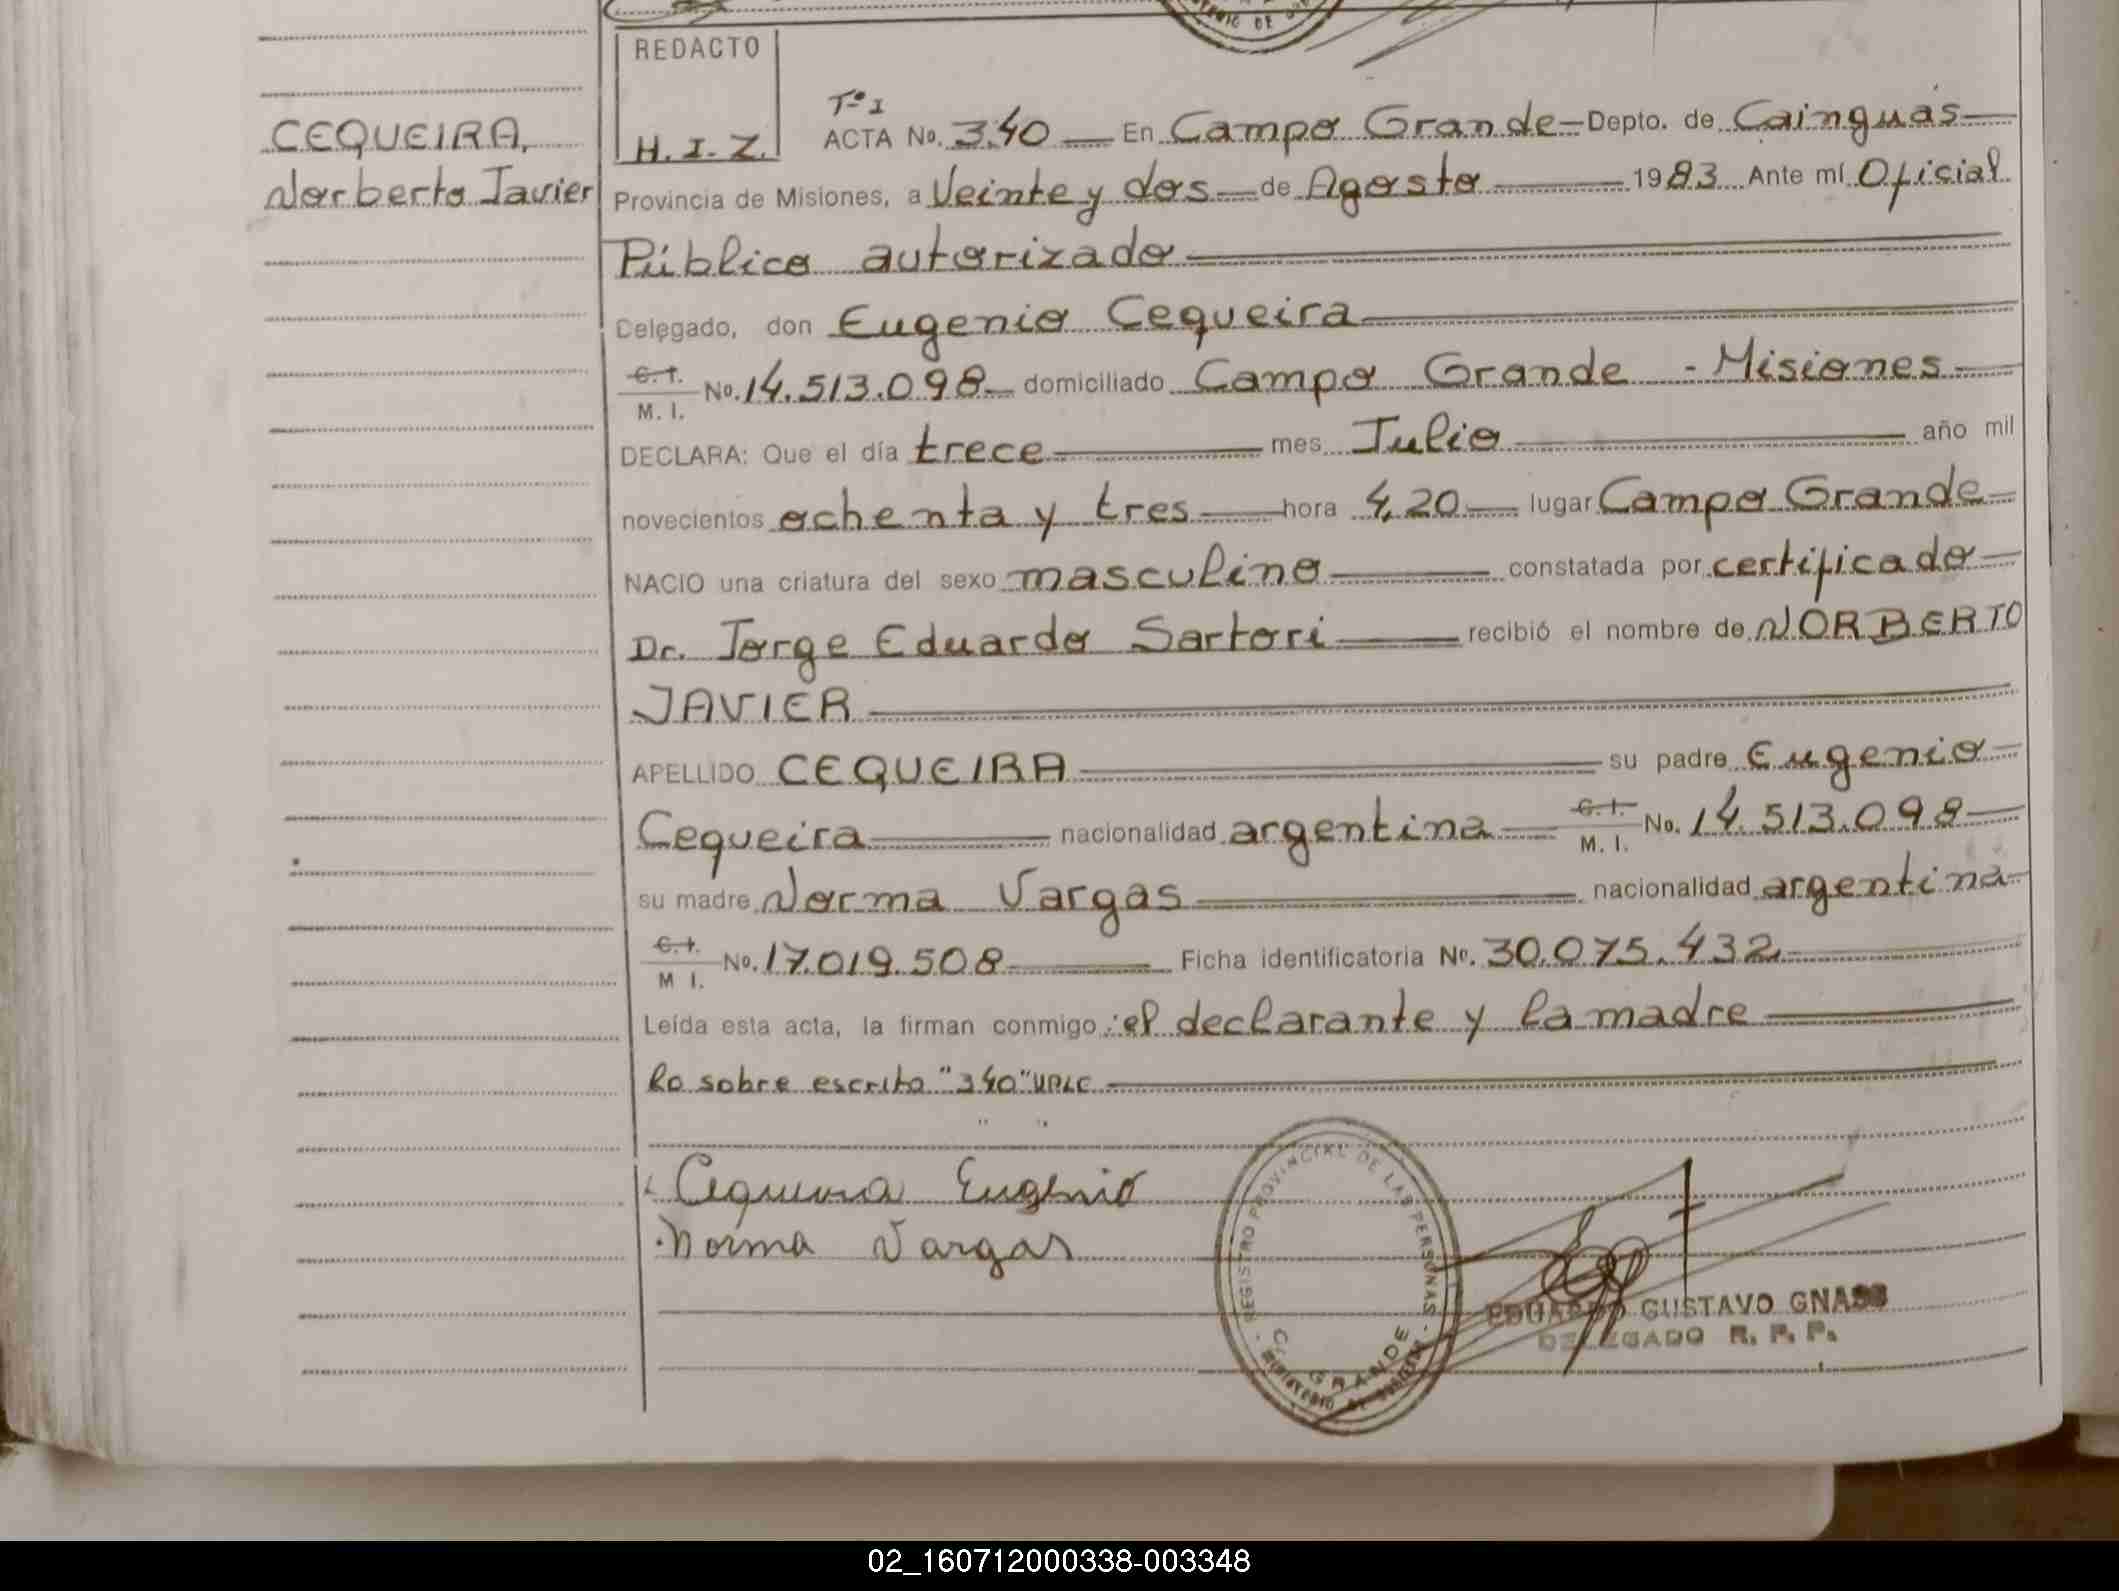 REDACTO
H. I. Z.
CEQUEIRA,
Norberto Javier
Tº I
ACTA No. 340 En Campo Grande Depto. de Cainguás
Provincia de Misiones, a Veinte y dos de Agosto 1983 Ante mí Oficial
Público autorizado
Celegado, don Eugenio Cequeira
C. I. / M. I. No. 14.513.098 domiciliado Campo Grande - Misiones
DECLARA: Que el día trece mes Julio año mil
novecientos ochenta y tres hora 4,20 lugar Campo Grande
NACIO una criatura del sexo masculino constatada por certificado
Dr. Jorge Eduardo Sartori recibió el nombre de NORBERTO
JAVIER
APELLIDO CEQUEIRA su padre Eugenio
Cequeira nacionalidad argentina C. I. / M. I. No. 14.513.098
su madre Norma Vargas nacionalidad argentina
C. I. / M I. No. 17.019.508 Ficha identificatoria No. 30.075.432
Leída esta acta, la firman conmigo: el declarante y la madre
lo sobre escrito "340" VALE
Cequeira Eugenio
Norma Vargas
REGISTRO PROVINCIAL DE LAS PERSONAS
GRANDE
EDUARDO GUSTAVO GNASS
DELEGADO R. P. P.
02_160712000338-003348